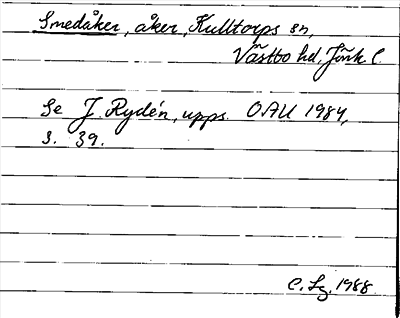 Smedåker, åker, Kulltorps sn,
Västbo hd, Jönk l.
Se J. Rydén, upps. OAU 1984,
s. 39.
C. Lg. 1988